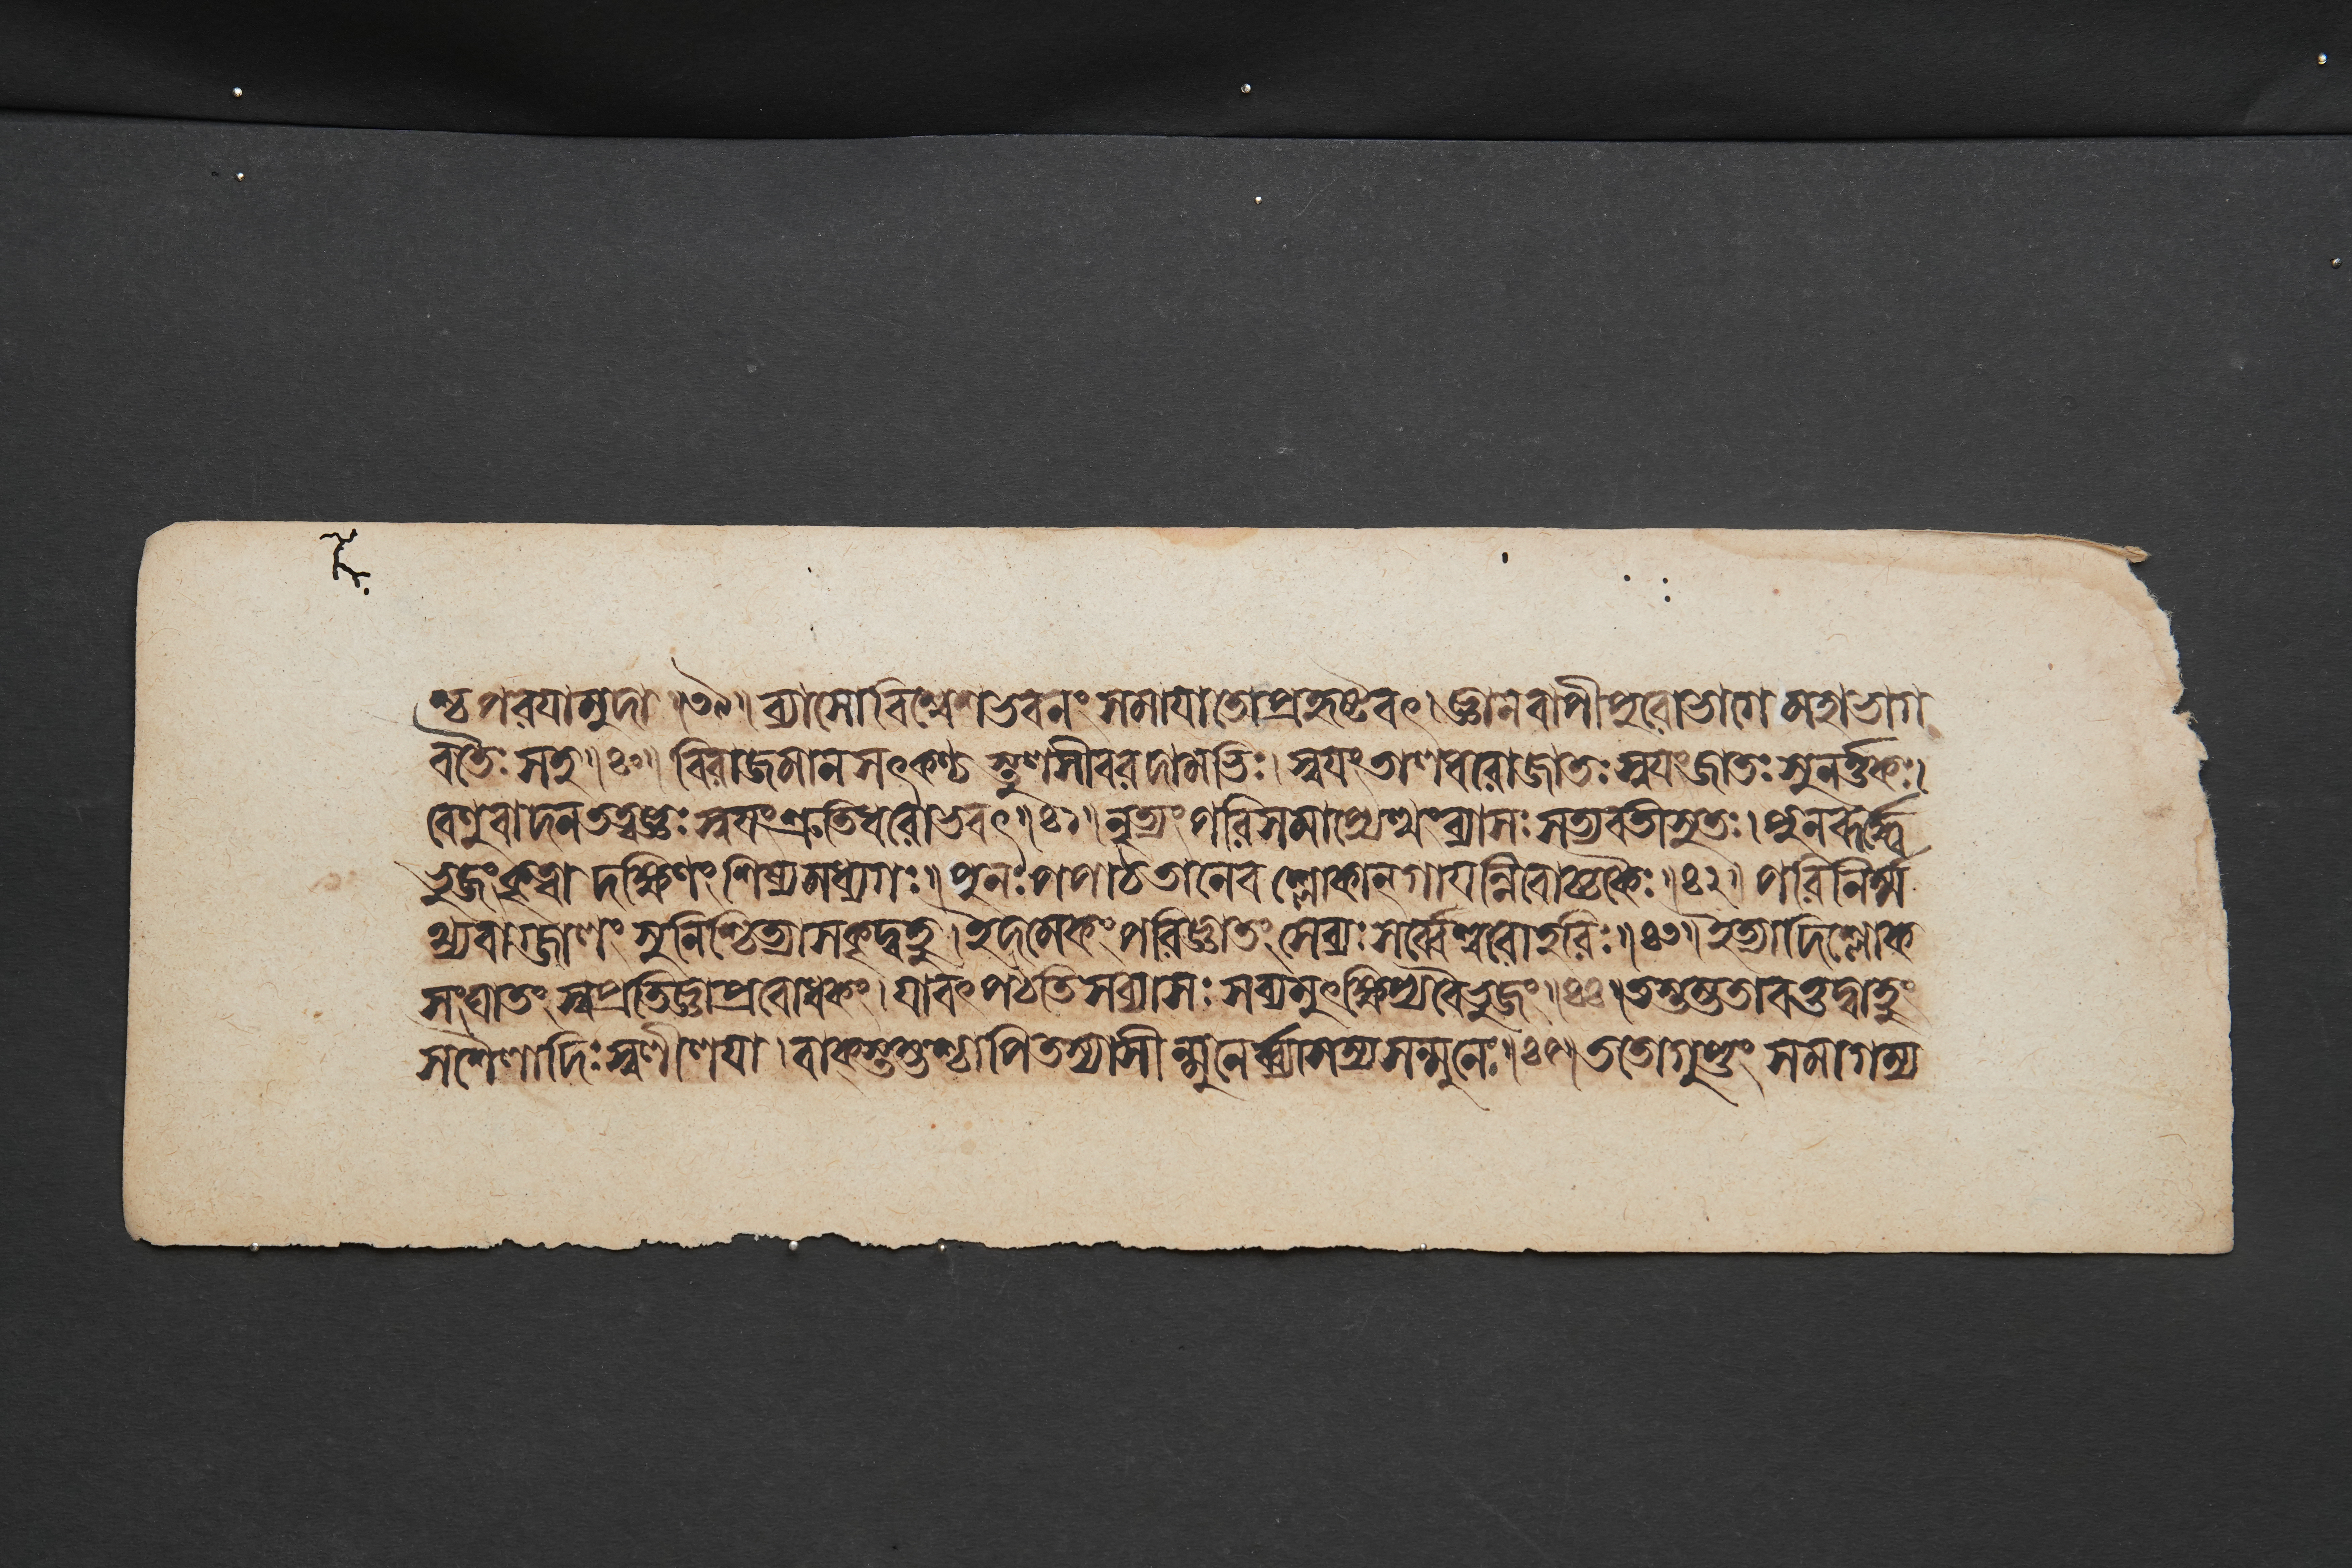 ষ্ঠ পরয়ামুদা ॥৩৯॥ ব্যাসো বিশ্বেশভবনং সমায়াতো প্রহৃষ্টবৎ। জ্ঞানবাপী পুরোভাগে মহাভাগ
বতৈঃ সহ॥৪০॥ বিরাজমান সৎকণ্ঠ স্তুলসীবরদামভিঃ। স্বয়ং তালধরোজাতঃ স্বয়ং জাতঃ সুনর্ত্তকঃ।
বেণুবাদনতত্বজ্ঞঃ স্বয়ং শ্রুতিধরোভবৎ॥৪১॥ নৃত্যং পরিসমাপ্যেত্থং ব্যাসঃ সত্যবতীসুতঃ। পুনরূর্দ্ধ
ভুজং কৃত্বা দক্ষিণং শিষ্যমধ্যগঃ॥ পুনঃ পপাঠ তানেব শ্লোকান গায়ন্নিবোচ্চকৈঃ॥৪২॥ পরিনির্ম্ম
থ্য বাগ্জালং সুনিশ্চিত্যাসকৃদ্বহু। ইদমেকং পরিজ্ঞাতং সেব্যঃ সর্ব্বেশ্বরোহরিঃ॥৪৩॥ ইত্যাদি শ্লোক
সংঘাতং স্বপ্রতিজ্ঞা প্রবোধকং। যাবৎ পঠতি স ব্যাসঃ সব্যমুৎক্ষিপ্য বৈ ভুজং॥৪৪॥ তস্তম্ভ তাবত্তদ্বাহুং
স শৈলাদিঃ স্বলীলয়া। বাকস্তম্ভশ্চাপি তস্যাসীন্মুনের্ব্যাসস্য সন্মুনেঃ॥৪৫॥ ততো গুপ্তং সমাগম্য